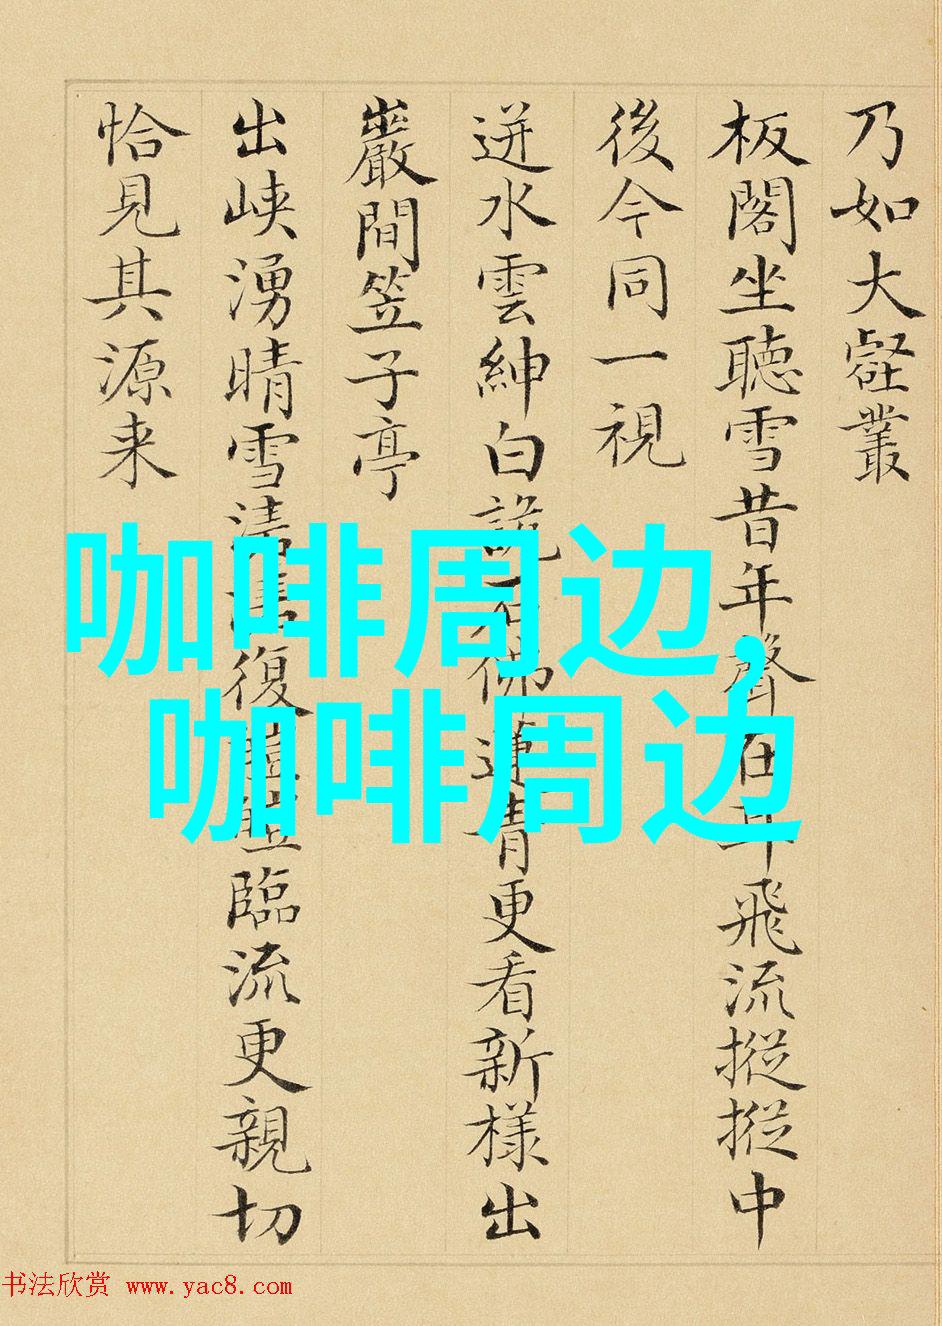 乃如大壑叢
板閣坐聽雪昔年聲在耳飛流摐摐中
後今同一視
迸水雲紳白詭石佛蓮青更看新樣出
巖間笠子亭
出峽湧晴雪清復臨流更親切
恰見其源来
咖啡周边,
咖啡周边
书法欣赏 www.yac8.com